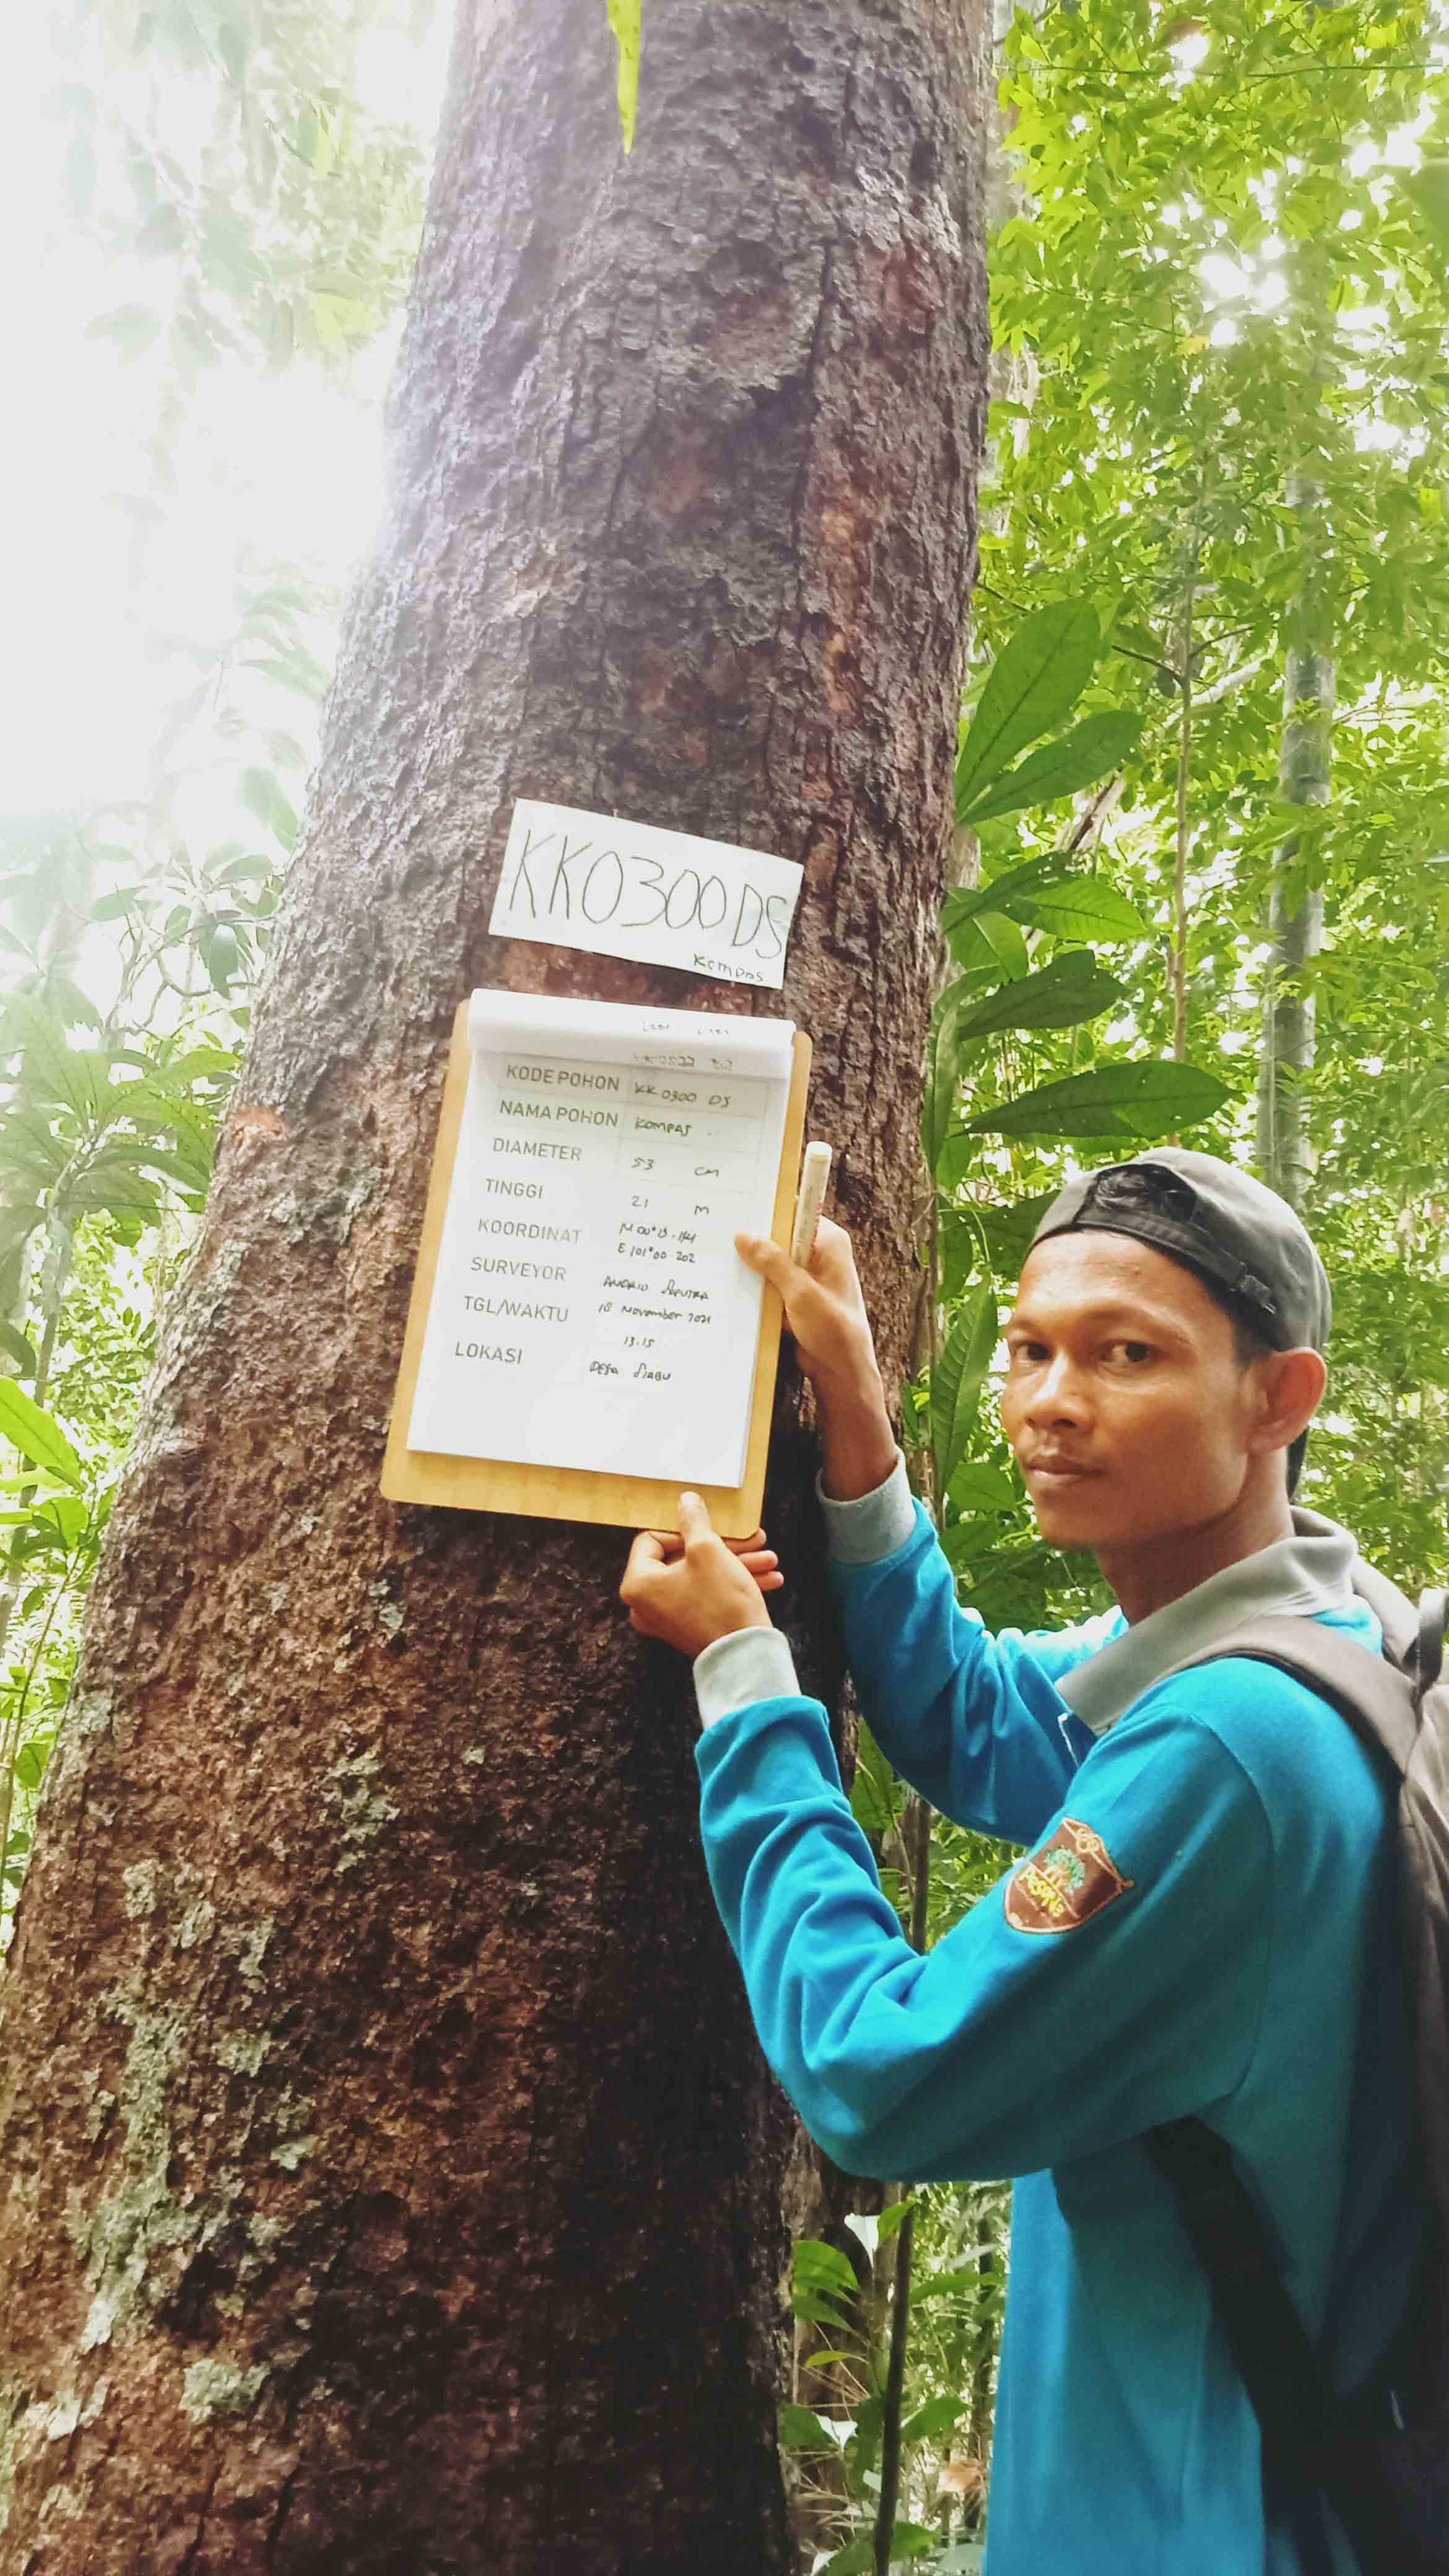 KK0300DS
Kompas
KODE POHON KK0300 DS
NAMA POHON KOMPAS
DIAMETER 53 CM
TINGGI 21 M
KOORDINAT N 00°13.144
E 101°00.202
SURVEYOR ANDRIO SAPUTRA
TGL/WAKTU 18 November 2021
13.15
LOKASI DESA SIABU